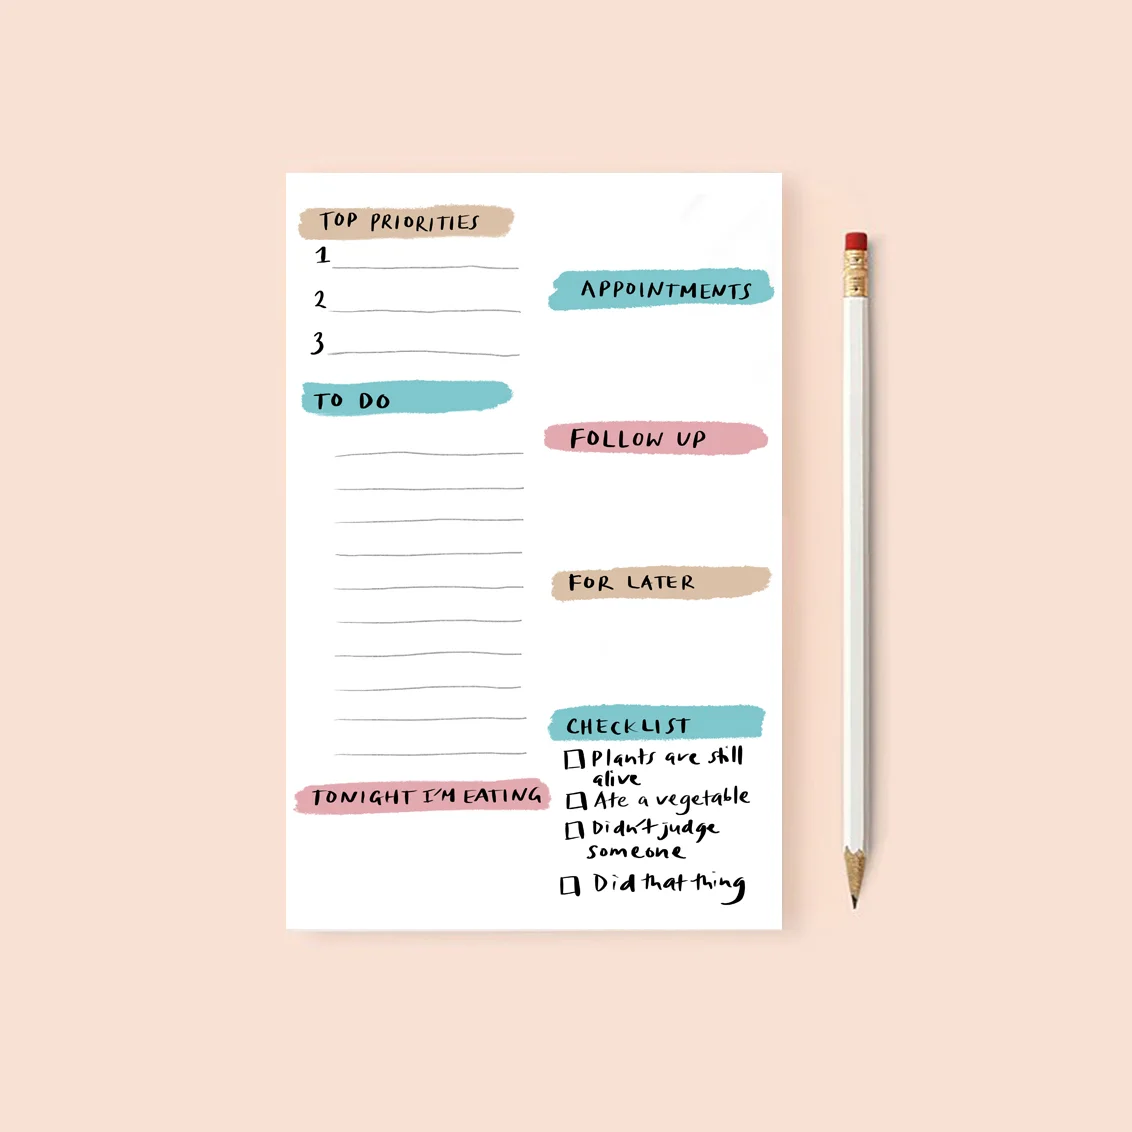 TOP PRIORITIES
1
2
3
TO DO
TONIGHT I'M EATING
APPOINTMENTS
FOLLOW UP
FOR LATER
CHECKLIST
Plants are still
alive
Ate a vegetable
Didn't judge
someone
Did that thing